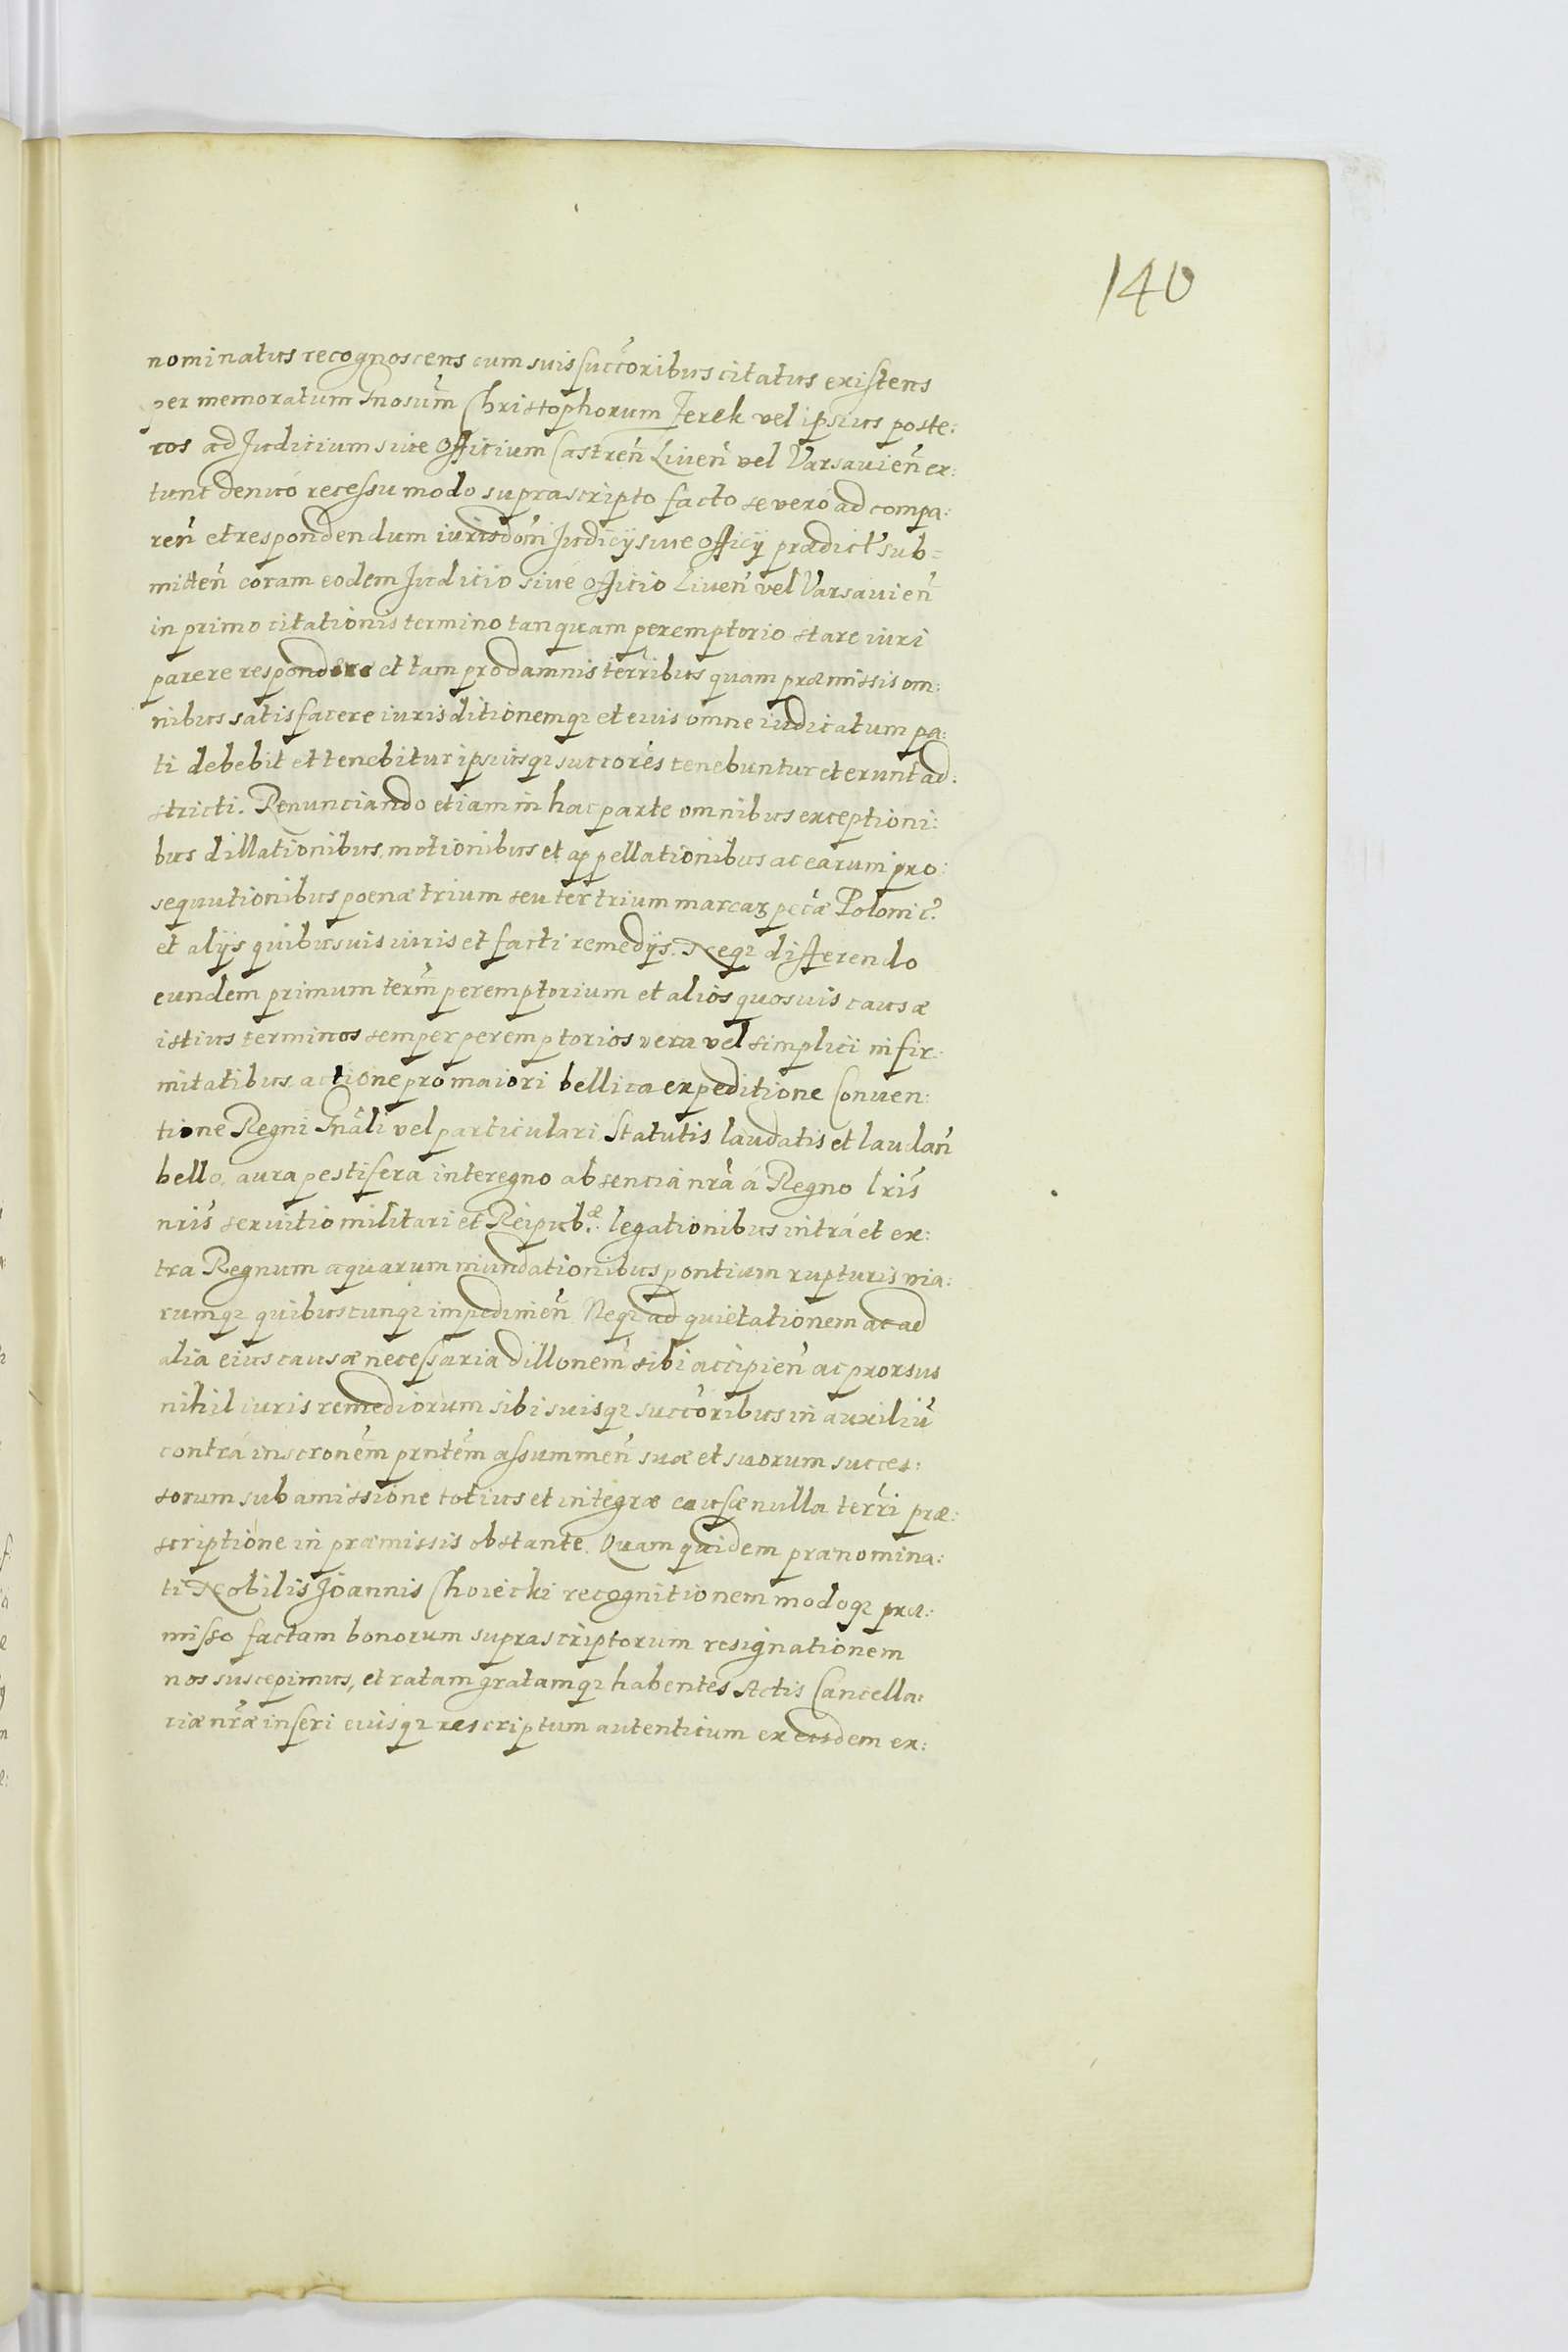 140
nominatus recognoscens cum suis succ̃oribus citatus existens
per memoratum Gnosum̃ Christophorum Jerek vel ipsius poste:
ros ad Judicium sive Officium Castren̄ Liven̄ vel Varsavien̄ ex:
tunc denuò recessu modo suprascripto facto se verò ad compa:
ren̄ et respondendum iurisdom̃ Judicÿ sive Officÿ prædict̃ sub=
mitten̄ coram eodem Judicio sivè officio Liven̄ vel Varsavien̄
in primo citationis termino tanquam peremptorio stare iuri
parere respondere et tam pro damnis terr̃ibus quam præmissis om:
nibus satisfacere iurisditionemq3 et eius omne iudicatum pa:
ti debebit et tenebitur ipsiusq3 succorẽs tenebuntur et erunt ad:
stricti. Renunciando etiam in hac parte omnibus exceptioni:
bus dillationibus, motionibus et appellationibus ac earum pro:
sequutionibus poenæ trium seu ter trium marcarꝫ pec̃æ Polonic̃.
et alÿs quibusvis iuris et facti remedÿs. Neq3 differendo
eundem primum term̃ peremptorium et alios quosvis causæ
istius terminos semper peremptorios vera vel simplici infir:
mitatibus actione pro maiori bellica expeditione Conven:
tione Regni Gnãli vel particulari Statutis laudatis et laudan̄
bello, aura pestifera interegno absencia nrã à Regno lrĩs
nrĩs servitio militari et Reipub.æ legationibus intrà et ex:
tra Regnum aquarum inundationibus pontium rupturis via:
rumq3 quibuscunq3 impedimen̄ Neq3 ad quietationem ac ad
alia eius causæ necessaria dillonem̃ sibi accipien̄ ac prorsus
nihil iuris remediorum sibi suisq3 succ̃oribus in auxiliũ
contrà inscronẽm prntẽm assummen̄ suæ et suorum succes:
sorum sub amissione totius et integræ causæ nulla terr̃i præ:
scriptione in præmissis obstante. Quam quidem prænomina:
ti Nobilis Joannis Choiecki recognitionem modoq3 præ:
misso factam bonorum suprascriptorum resignationem
nos suscepimus, et ratam gratamq3 habentes Actis Cancella:
riæ nrãe inseri eiusq3 rescriptum autenticum ex eisdem ex: